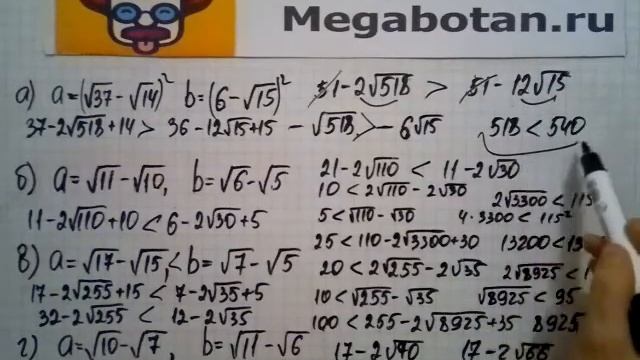 Megabotan.ru
а) a=(√37-√14)² b=(6-√15)² 51-2√518 > 51-12√15
37-2√518+14> 36-12√15+15 -√518>-6√15 518<540
б) a=√11-√10, b=√6-√5 21-2√110 < 11-2√30
10<2√110-2√30 2√3300<115
11-2√110+10<6-2√30+5 5<√110-√30 4·3300<115²
25<110-2√3300+30 13200<13
в) a=√17-√15,< b=√7-√5 20<2√255-2√35 2√8925<1
17-2√255+15<7-2√35+5 10<√255-√35 √8925<95
32-2√255 < 12-2√35 100<255-2√8925+35 8925
г) a=√10-√7, b=√11-√6 17-2√70 17-2√66